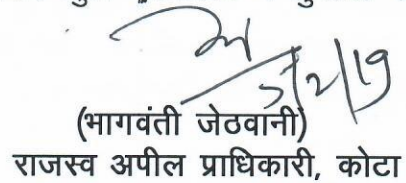 5/2/19
(भागवंती जेठवानी)
राजस्व अपील प्राधिकारी, कोटा